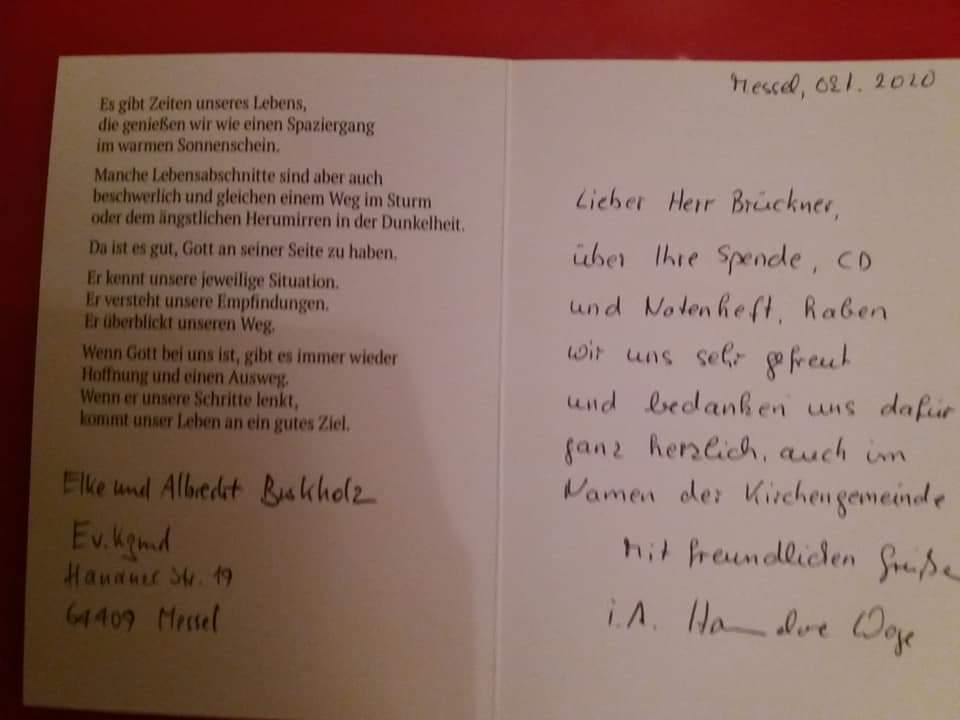 Es gibt Zeiten unseres Lebens,
die genießen wir wie einen Spaziergang
im warmen Sonnenschein.
Manche Lebensabschnitte sind aber auch
beschwerlich und gleichen einem Weg im Sturm
oder dem ängstlichen Herumirren in der Dunkelheit.
Da ist es gut, Gott an seiner Seite zu haben.
Er kennt unsere jeweilige Situation.
Er versteht unsere Empfindungen.
Er überblickt unseren Weg.
Wenn Gott bei uns ist, gibt es immer wieder
Hoffnung und einen Ausweg.
Wenn er unsere Schritte lenkt,
kommt unser Leben an ein gutes Ziel.
Elke und Albrecht
Ev. Kgmd
Hanauer Str. 19
64409 Messel
Messel, 2020
Lieber Herr Brückner,
über Ihre Spende, CD
und Notenheft, haben
wir uns sehr gefreut
und bedanken uns dafür
ganz herzlich, auch im
Namen der Kirchengemeinde
Mit freundlichen Grüße
i.A.